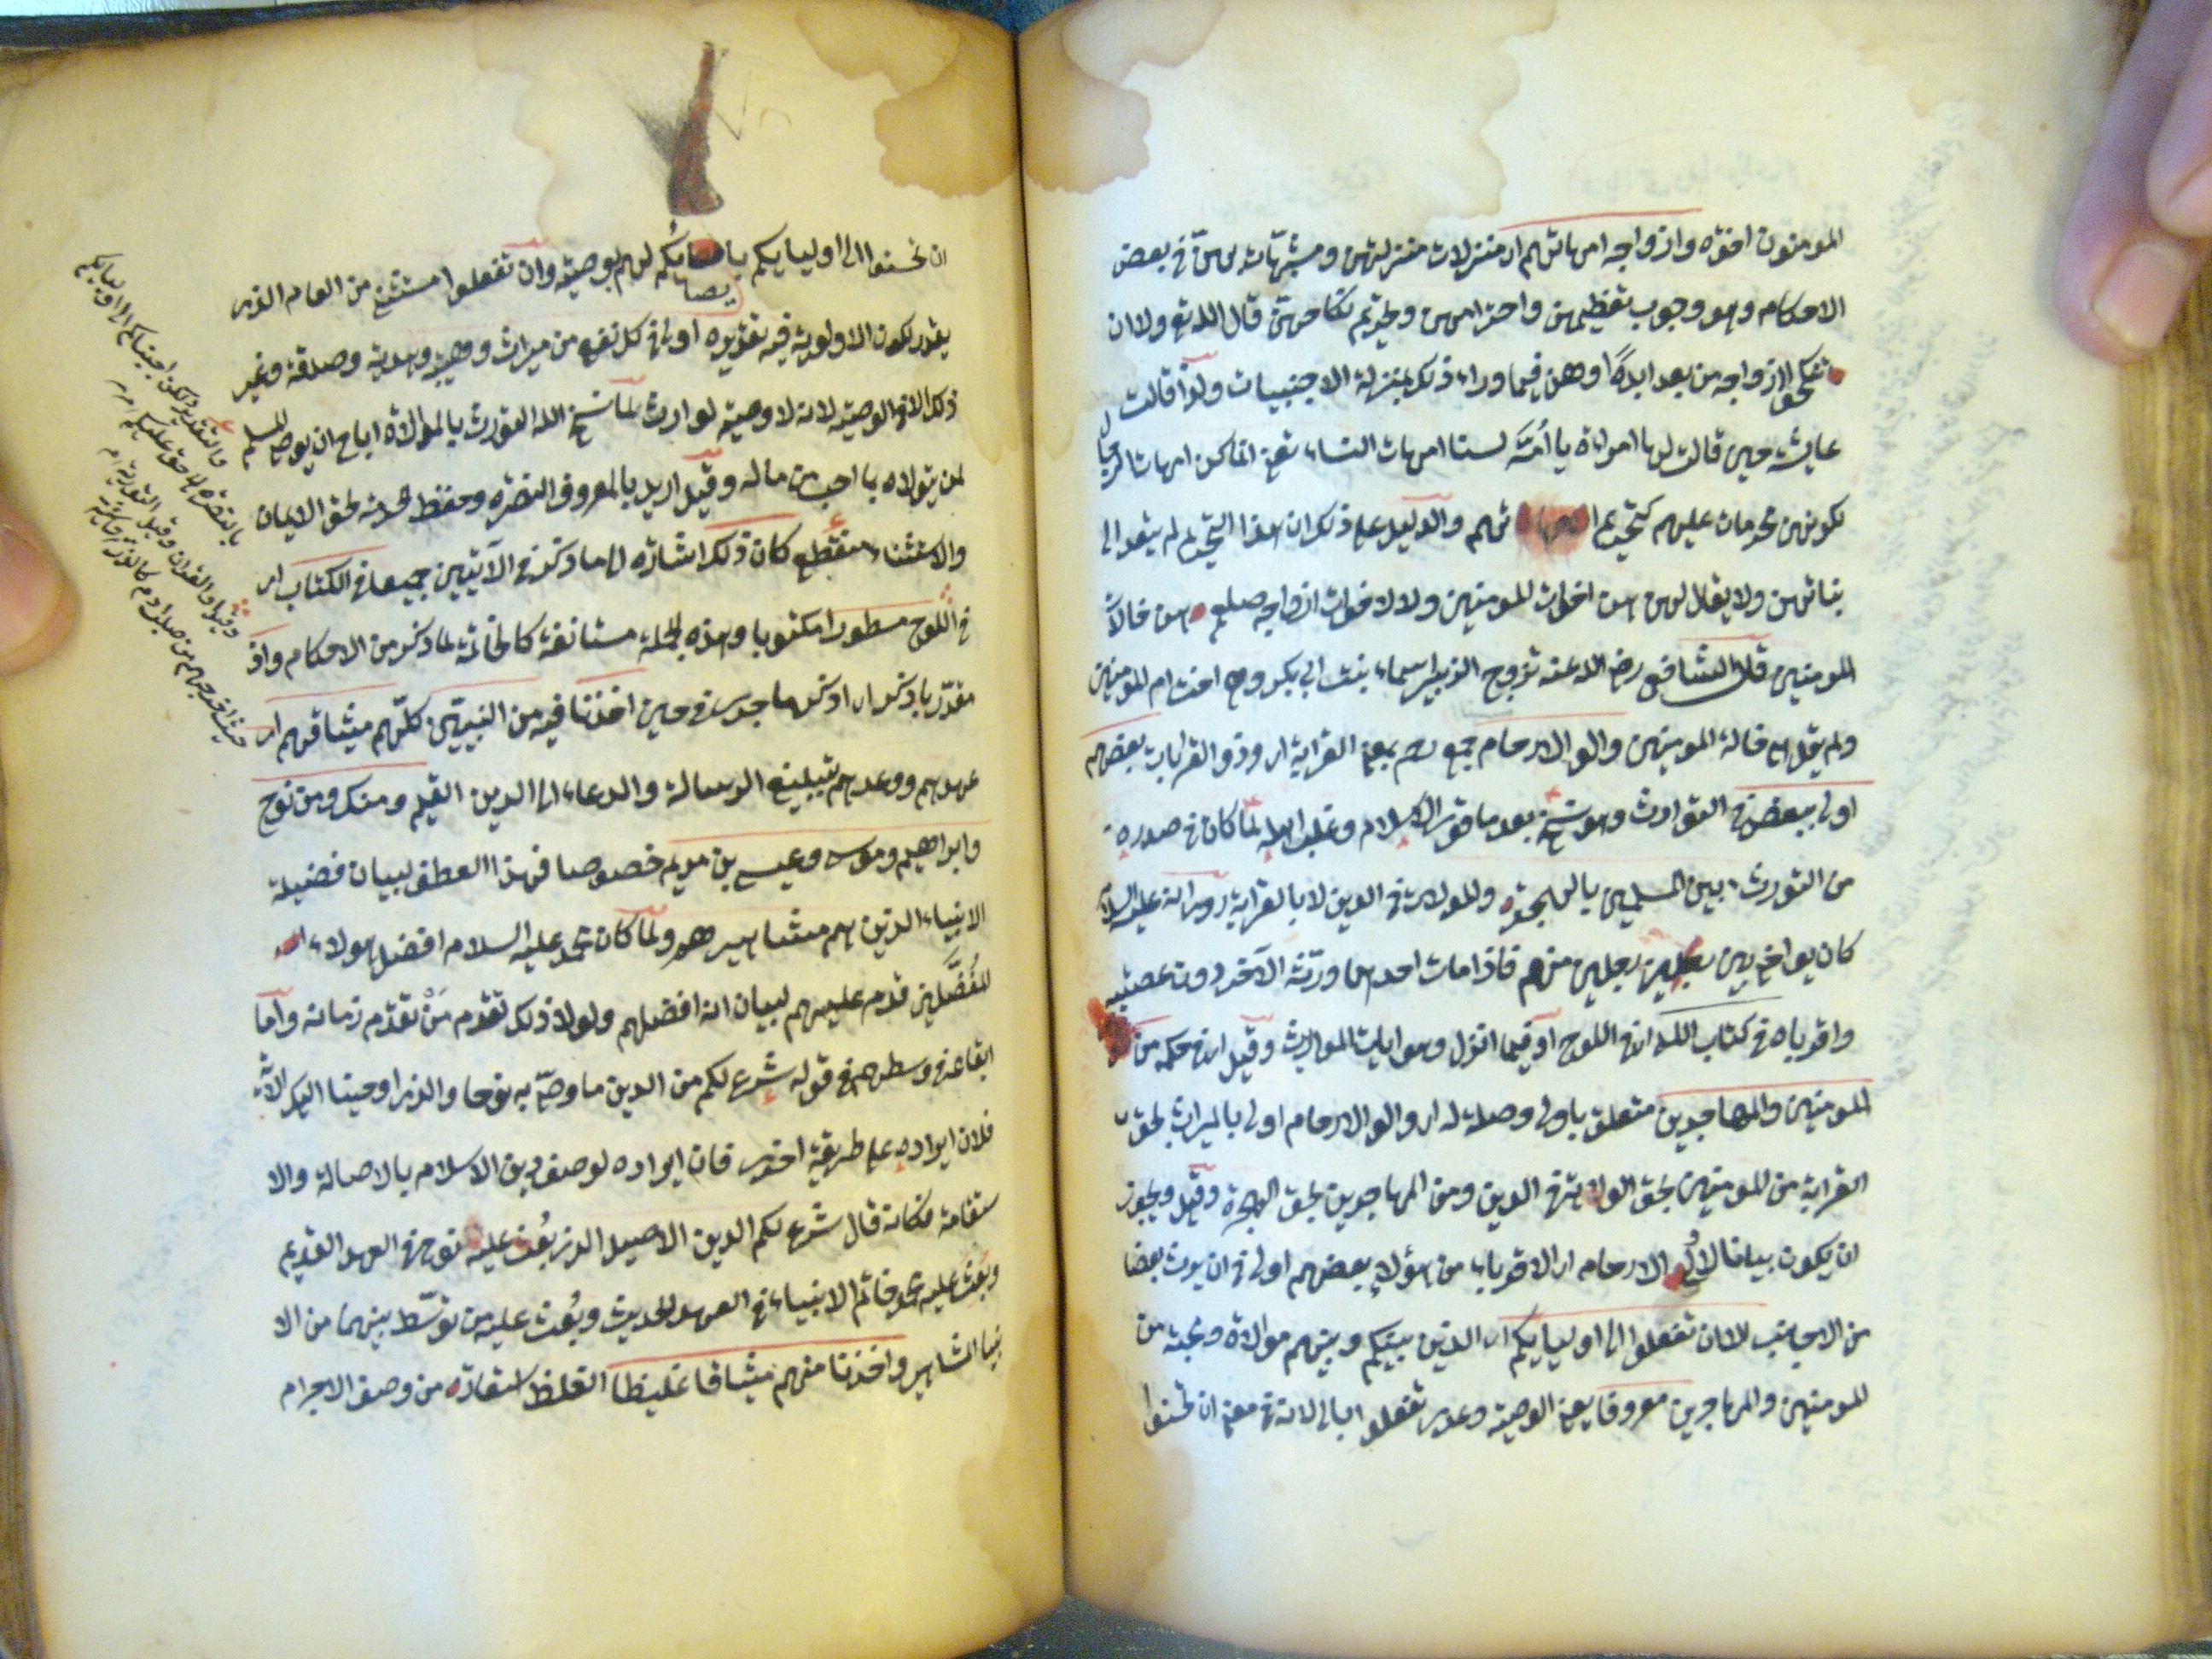 المومنون اخوة وازواجه امهاتهم اى منزلات منزلتهن ومشبهات بهن فى بعض
الاحكام وهو وجوب تعظيمهن واحترامهن وتحريم نكاحهن قال الله تع ولا ان
تنكحوا ازواجه من بعده ابدا وهن فيما وراء ذلك بمنزلة الاجنبيات ولذا قالت
عايشه حين قالت لها امراة يا امه لسنا امهات النساء تعنى انما كن امهات الرجال
لكونهن محرمات عليهم كتحريم امهاتهم والدليل على ذلك ان هذا التحريم لم يتعد الى
بناتهن ولا يقال لهن اخوات المومنين ولا لاخوات ازواجه صلعم هن خالات
المومنين قال الشافعى رضى الله عنه تزوج الزبير اسماء بنت ابى بكر وهى اخت ام المومنين
ولم يقل هى خالة المومنين واولو الارحام جمع رحم بمعنى القرابة اى وذوو القرابات بعضهم
اولى ببعض فى التوارث وهو نسخ بعد ما قوى الاسلام وغلب اهله لما كان فى صدره
من التورث بين المسلمين بالهجرة والموالاة فى الدين لا بالقرابة روى انه عليه السلام
كان يواخى بين رجلين منهم فاذا مات احدهما ورثه الآخر دون عصبته
واقرباه فى كتاب الله اى فى اللوح او فيما انزل وهو ايات المواريث وقيل اى فى حكمه من
المومنين والمهاجرين متعلق باولى وصلة له اى واولو الارحام اولى بالميراث بحق
القرابة من المومنين بحق الولاية فى الدين ومن المهاجرين بحق الهجرة وقيل ويجوز
ان يكون بيانا لاولى الارحام اى الاقرباء من هؤلاء بعضهم اولى فى ان يرث بعضا
من الاجانب الا ان تفعلوا الى اوليايكم اى الذين بينكم وبينهم موالاة ومحبة من
المومنين والمهاجرين معروفا يعنى الوصية وعدى تفعلوا بالى لانه فى معنى ان تحسنوا
ان تحسنوا الى اوليايكم بايصائكم لهم بوصية وان تفعلوا مستثنى من العام الذى
يقدر لكون الاولوية فيه تقديره اولى فى كل نفع من ميراث ووصية وهدية وصدقة وغير
ذلك الا فى الوصية لانه لا وصية لوارث لما نسخ الله التورث بالموالاة اباح ان يوصى المسلم
لمن يتولاه بما احب من ماله وقيل اريد بالمعروف النصرة وحفظ الحرمة بحق الايمان
والاستثناء منقطع كان ذلك اشارة الى ما ذكر فى الآيتين جميعا فى الكتاب اى
فى اللوح مسطورا مكتوبا وهذه الجملة مستانفة كالخاتمة لما ذكر من الاحكام واذ
مقدر باذكر اى اذكر ما جرى فى حين اخذنا فيه من النبيين كلهم ميثاقهم اى
عهدهم ووعدهم بتبليغ الرسالة والدعاء الى الدين القيم ومنك ومن نوح
وابراهيم وموسى وعيسى بن مريم خصوصا فهذا العطف لبيان فضيلة
الانبياء الذين هم مشاهيرهم ولما كان محمد عليه السلام افضل هولاء
المفضلين قدم عليهم لبيان انه افضلهم ولولا ذلك لقدم من تقدم زمانه واما
ايقاعه فى وسطهم فى قوله شرع لكم من الدين ما وصى به نوحا والذى اوحينا اليك الآية
فلان ايراده على طريقة اخرى فان ايراده لوصف دين الاسلام بالاصالة والا
ستقامة فكانه قال شرع لكم الدين الاصيل الذى بعث عليه نوح فى العهد القديم
وبعث عليه محمد خاتم الانبياء فى العهد الحديث وبعث عليه من توسط بينهما من الا
نبيا المشاهير واخذنا منهم ميثاقا غليظا الغلظ استعارة من وصف الاجرام
والتقدير لكن احسانكم الى اوليايكم
بالنصرة لما حق عليكم
وقيل والقران وقيل التورية
حين اخرجهم من صلب ادم كالذر